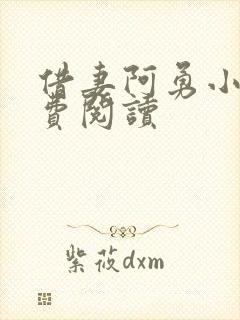 借妻阿勇小
費閱讀
紫莜dxm